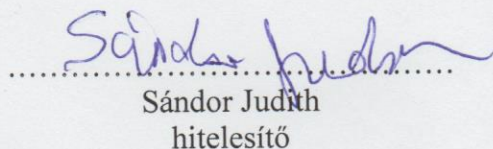 Sándor Judith
Sándor Judith
hitelesítő